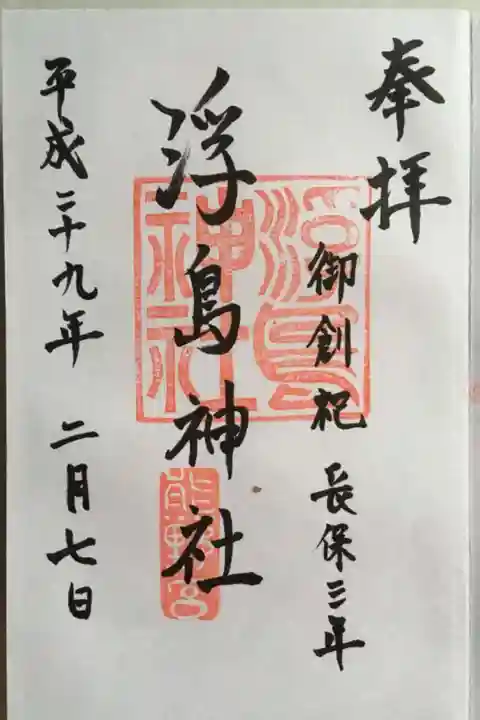 奉拝
御創祀 長保三年
浮島神社
平成二十九年 二月七日
浮島神社
熊野宮